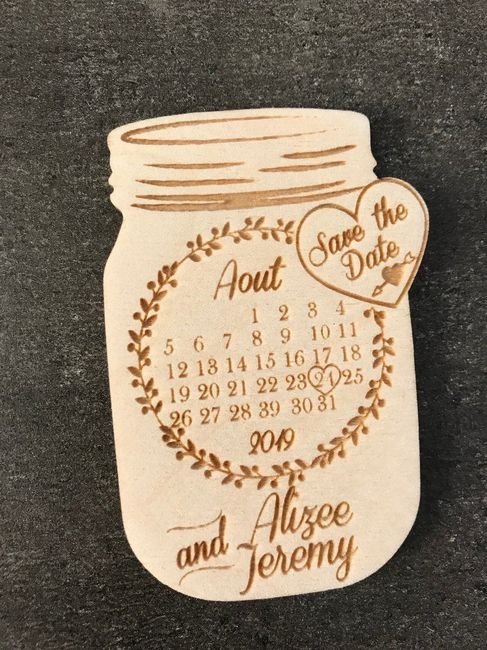 Save the
Date
Aout
1 2 3 4
5 6 7 8 9 10 11
12 13 14 15 16 17 18
19 20 21 22 23 24 25
26 27 28 39 30 31
2019
Alizee
and Jeremy